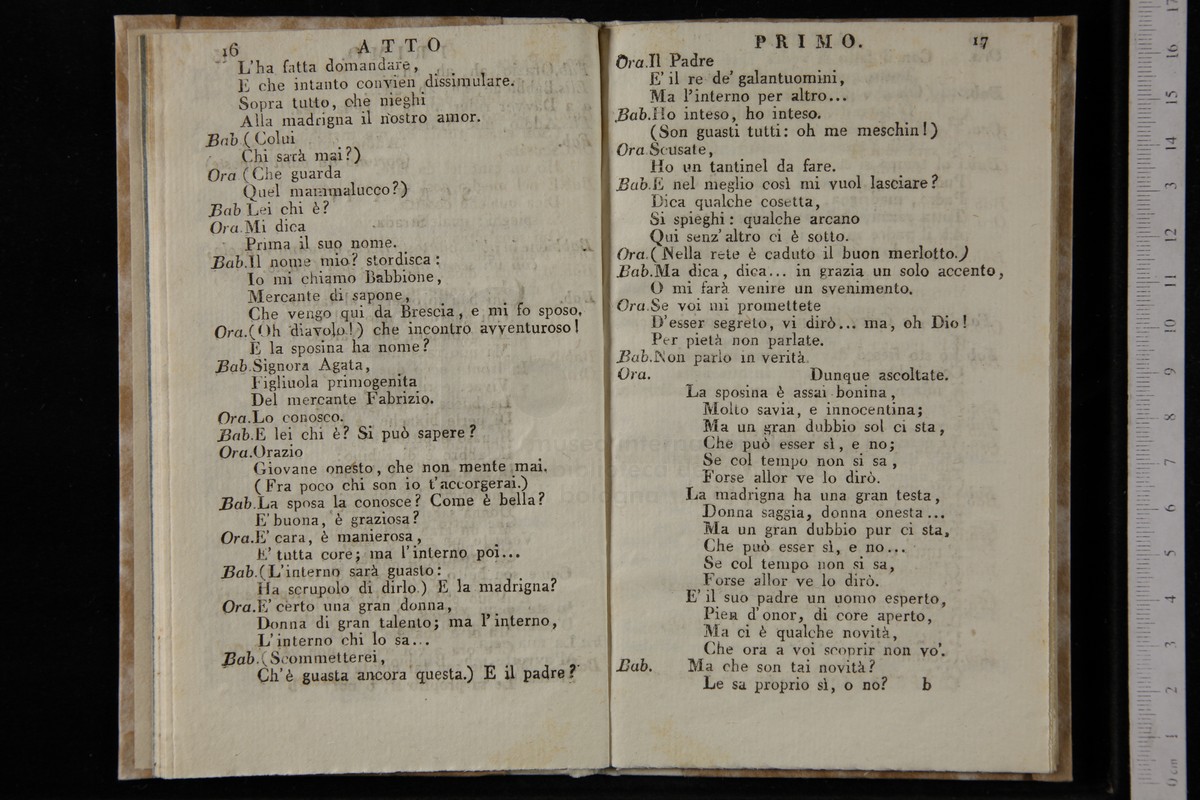 16 ATTO
L'ha fatta domandare,
E che intanto convien dissimulare.
Sopra tutto, che nieghi
Alla madrigna il nostro amor.
Bab (Colui
Chi sarà mai?)
Ora (Che guarda
Quel mammalucco?)
Bab Lei chi è?
Ora. Mi dica
Prima il suo nome.
Bab. Il nome mio? stordisca:
Io mi chiamo Babbione,
Mercante di sapone,
Che vengo qui da Brescia, e mi fo sposo.
Ora. (Oh diavolo!) che incontro avventuroso!
E la sposina ha nome?
Bab. Signora Agata,
Figliuola primogenita
Del mercante Fabrizio.
Ora. Lo conosco.
Bab. E lei chi è? Si può sapere?
Ora. Orazio
Giovane onesto, che non mente mai.
(Fra poco chi son io t'accorgerai.)
Bab. La sposa la conosce? Come è bella?
E' buona, è graziosa?
Ora. E' cara, è manierosa,
E' tutta core; ma l'interno poi...
Bab. (L'interno sarà guasto:
Ha scrupolo di dirlo.) E la madrigna?
Ora. E' certo una gran donna,
Donna di gran talento; ma l'interno,
L'interno chi lo sa...
Bab. (Scommetterei,
Ch'è guasta ancora questa.) E il padre?
PRIMO. 17
Ora. Il Padre
E' il re de' galantuomini,
Ma l'interno per altro...
Bab. Ho inteso, ho inteso.
(Son guasti tutti: oh me meschin!)
Ora Scusate,
Ho un tantinel da fare.
Bab. E nel meglio così mi vuol lasciare?
Dica qualche cosetta,
Si spieghi: qualche arcano
Qui senz'altro ci è sotto.
Ora. (Nella rete è caduto il buon merlotto.)
Bab. Ma dica, dica... in grazia un solo accento,
O mi farà venire un svenimento.
Ora. Se voi mi promettete
D'esser segreto, vi dirò... ma, oh Dio!
Per pietà non parlate.
Bab. Non parlo in verità.
Ora. Dunque ascoltate.
La sposina è assai bonina,
Molto savia, e innocentina;
Ma un gran dubbio sol ci sta,
Che può esser sì, e no;
Se col tempo non si sa,
Forse allor ve lo dirò.
La madrigna ha una gran testa,
Donna saggia, donna onesta...
Ma un gran dubbio pur ci sta,
Che può esser sì, e no...
Se col tempo non si sa,
Forse allor ve lo dirò.
E' il suo padre un uomo esperto,
Pien d'onor, di core aperto,
Ma ci è qualche novità,
Che ora a voi scoprir non vo'.
Bab. Ma che son tai novità?
Le sa proprio sì, o no? b